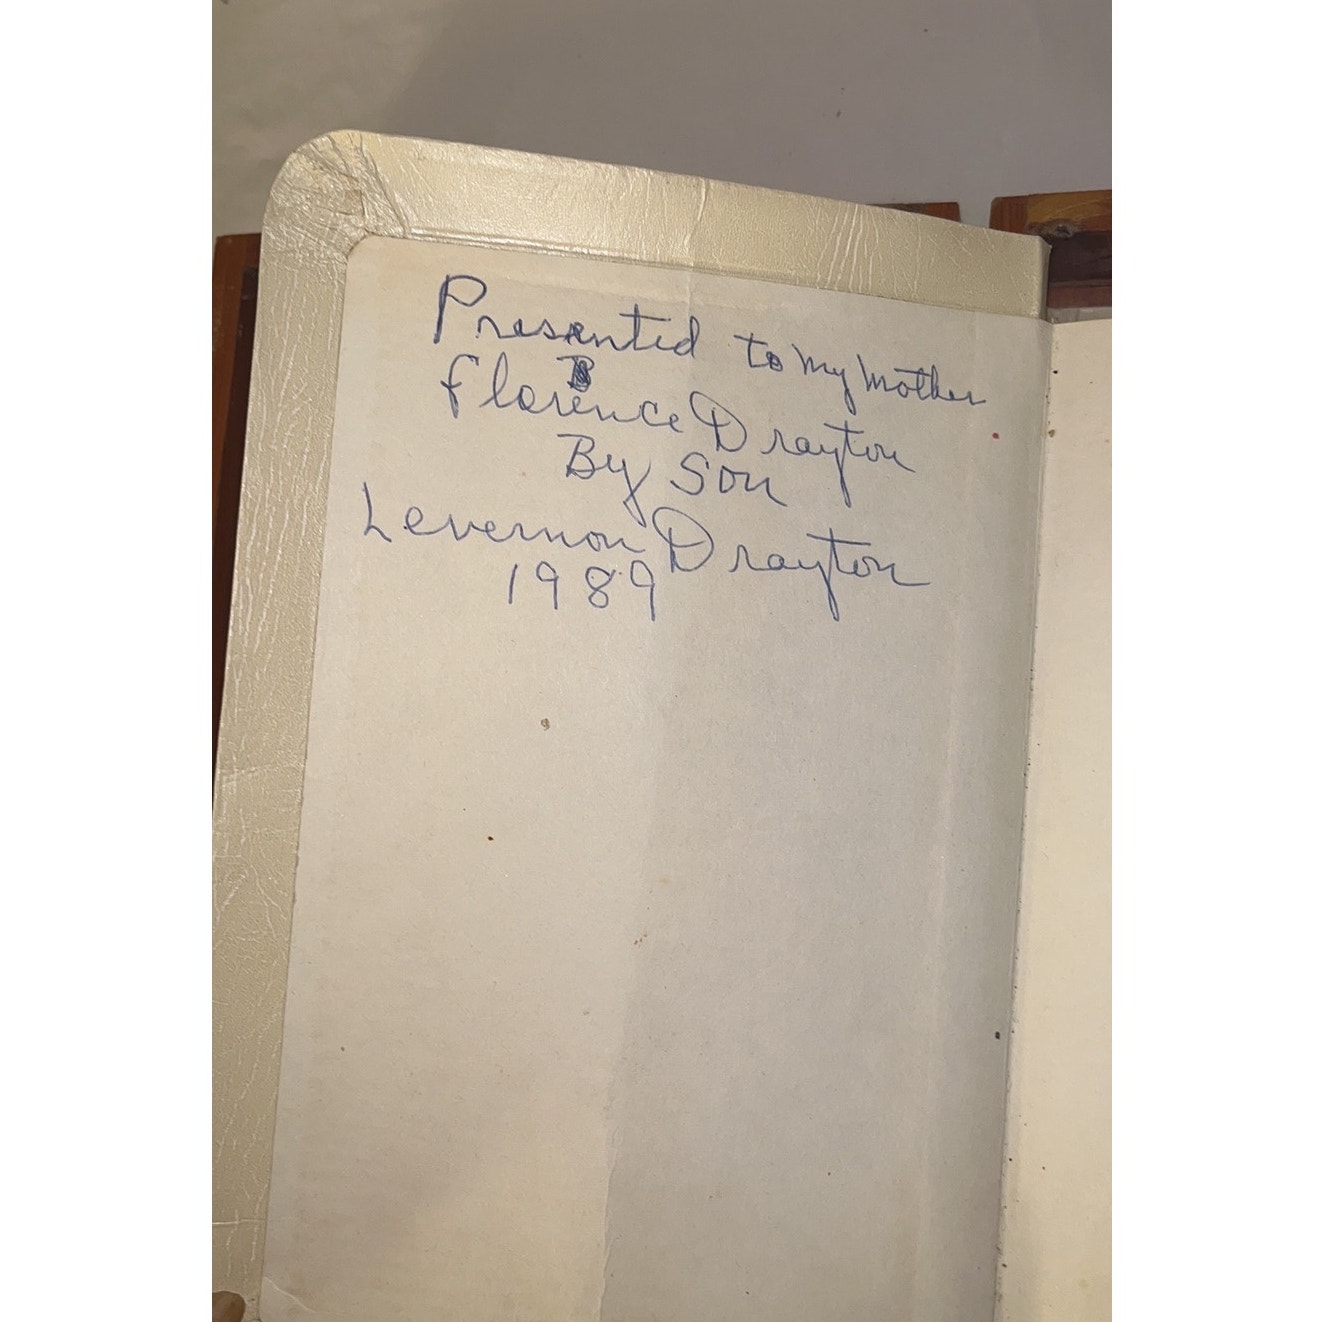 Presented to my mother
Florence Drayton
By Son
Levernon Drayton
1989